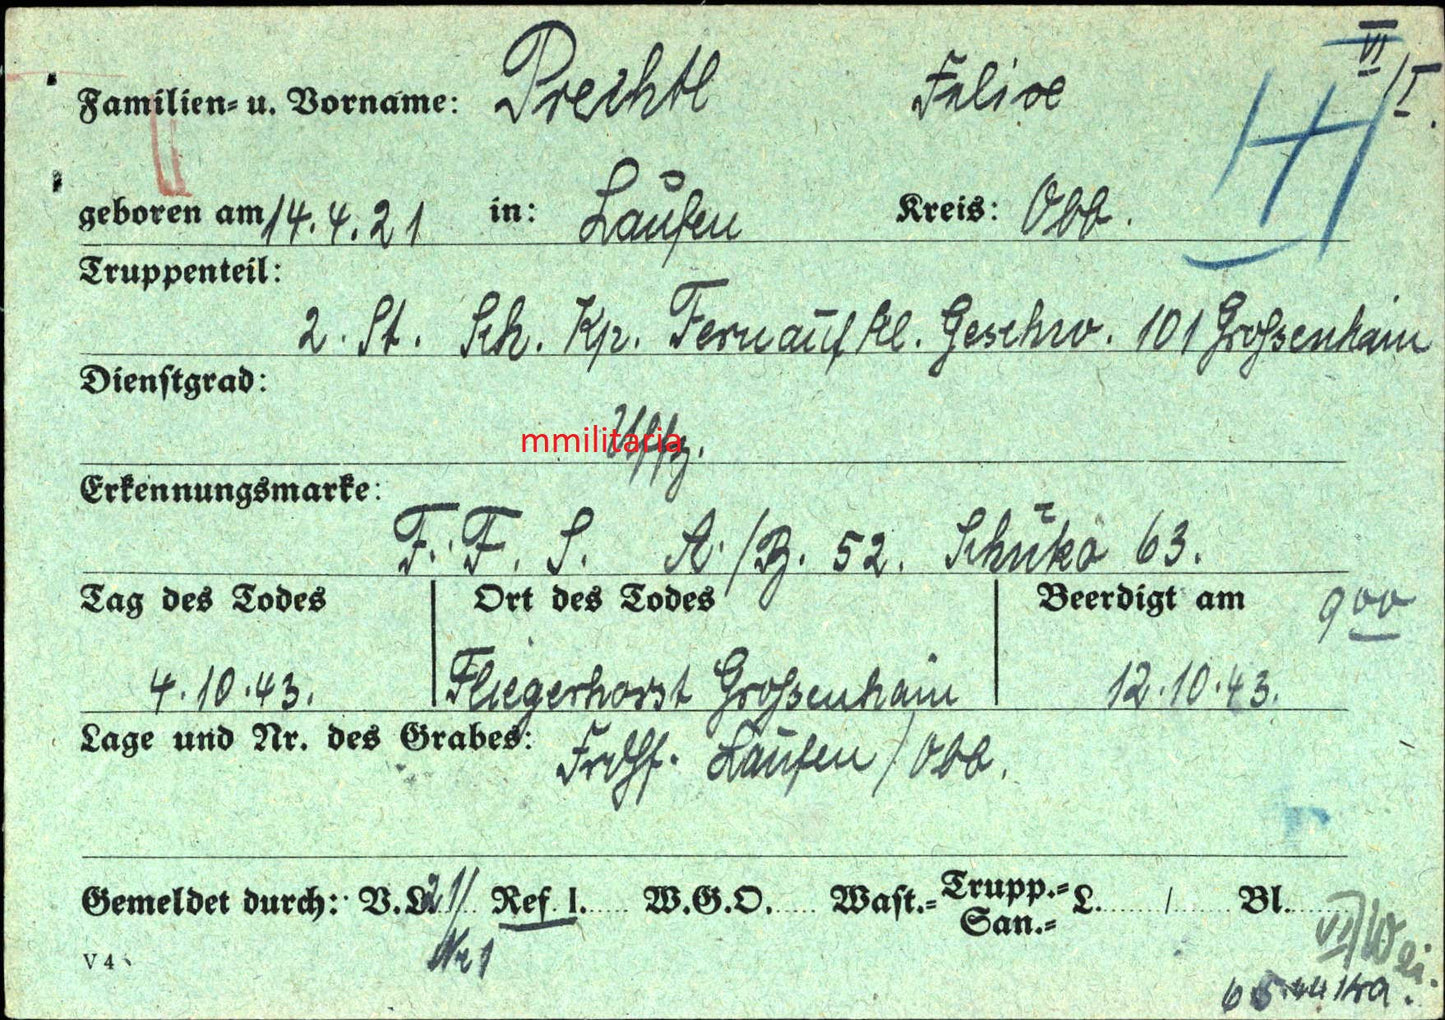 VI / I
Familien= u. Vorname: Prechtl Felix
H
geboren am 14.4.21 in: Laufen Kreis: Obb.
Truppenteil:
2. St. Sch. Kp. Fernaufkl. Geschw. 101 Großenhain
Dienstgrad:
Uffz.
mmilitaria
Erkennungsmarke:
F. F. S. A./B. 52. Schüko 63.
Tag des Todes Ort des Todes Beerdigt am 9 00
4.10.43. Fliegerhorst Großenhain 12.10.43.
Lage und Nr. des Grabes: Frdhf. Laufen / Obb.
Gemeldet durch: V.L. 21/ Ref. I. W.G.O. Wast.= Trupp.= San.= L. / Bl.
Nr 1
V 4
VI/Wei.